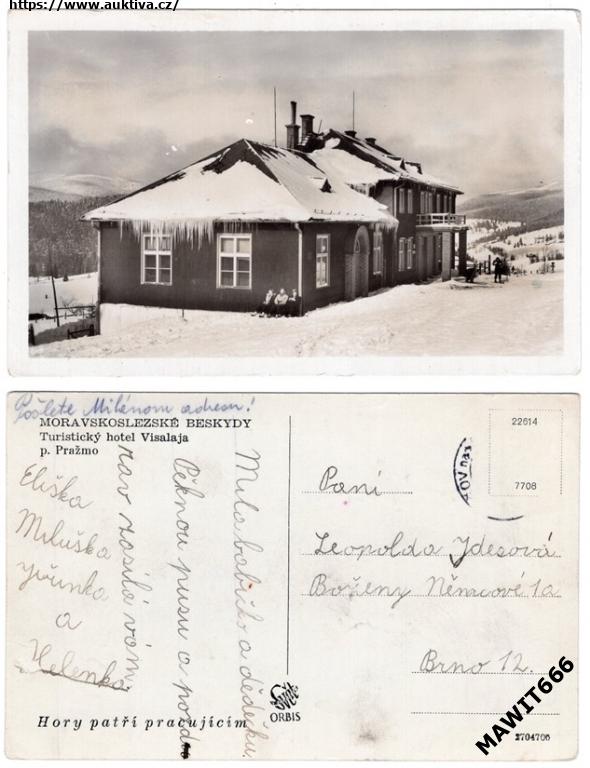 https://www.auktiva.cz/
Pošlete Milénom adresu!
MORAVSKOSLEZSKÉ BESKYDY
Turistický hotel Visalaja
p. Pražmo
Milá babičko a dědečku.
Pěknou pusu a pozd
rav zasílá vám
Eliška
Miluška
Jiřunka
a
Helenka
Hory patří pracujícím
Svět
ORBIS
22614
7708
Paní
Leopolda Jdesová
Boženy Němcové 1a
Brno 12.
2704706
MAWIT666